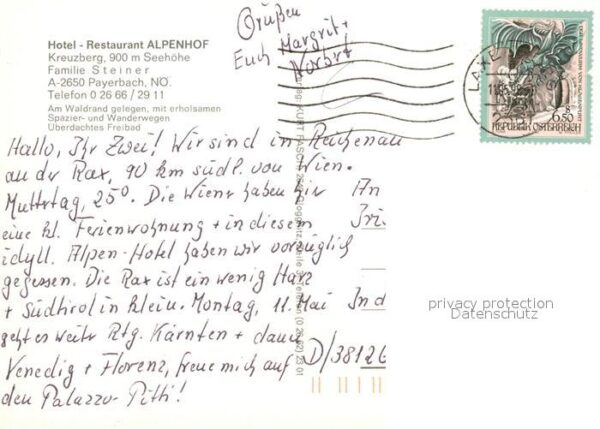 Grüßen
Euch Margrit +
Norbert
Hotel - Restaurant ALPENHOF
Kreuzberg, 900 m Seehöhe
Familie Steiner
A-2650 Payerbach, NÖ.
Telefon 0 26 66 / 29 11
Am Waldrand gelegen, mit erholsamen
Spazier- und Wanderwegen
Überdachtes Freibad
Hallo, Ihr Zwei! Wir sind in Reichenau
an der Rax, 90 km südl. von Wien.
Muttertag, 25°. Die Wiener haben hier
eine kl. Ferienwohnung + in diesem
idyll. Alpen-Hotel haben wir vorzüglich
gegessen. Die Rax ist ein wenig Harz
+ Südtirol in klein. Montag, 11. Mai
geht es weiter Rtg. Kärnten + dann
Venedig + Florenz, freue mich auf
den Palazzo-Pitti!
An
Ind
D/38126
KURT
(0 26 62) 23 01
6.50
REPUBLIK ÖSTERREICH
privacy protection
Datenschutz